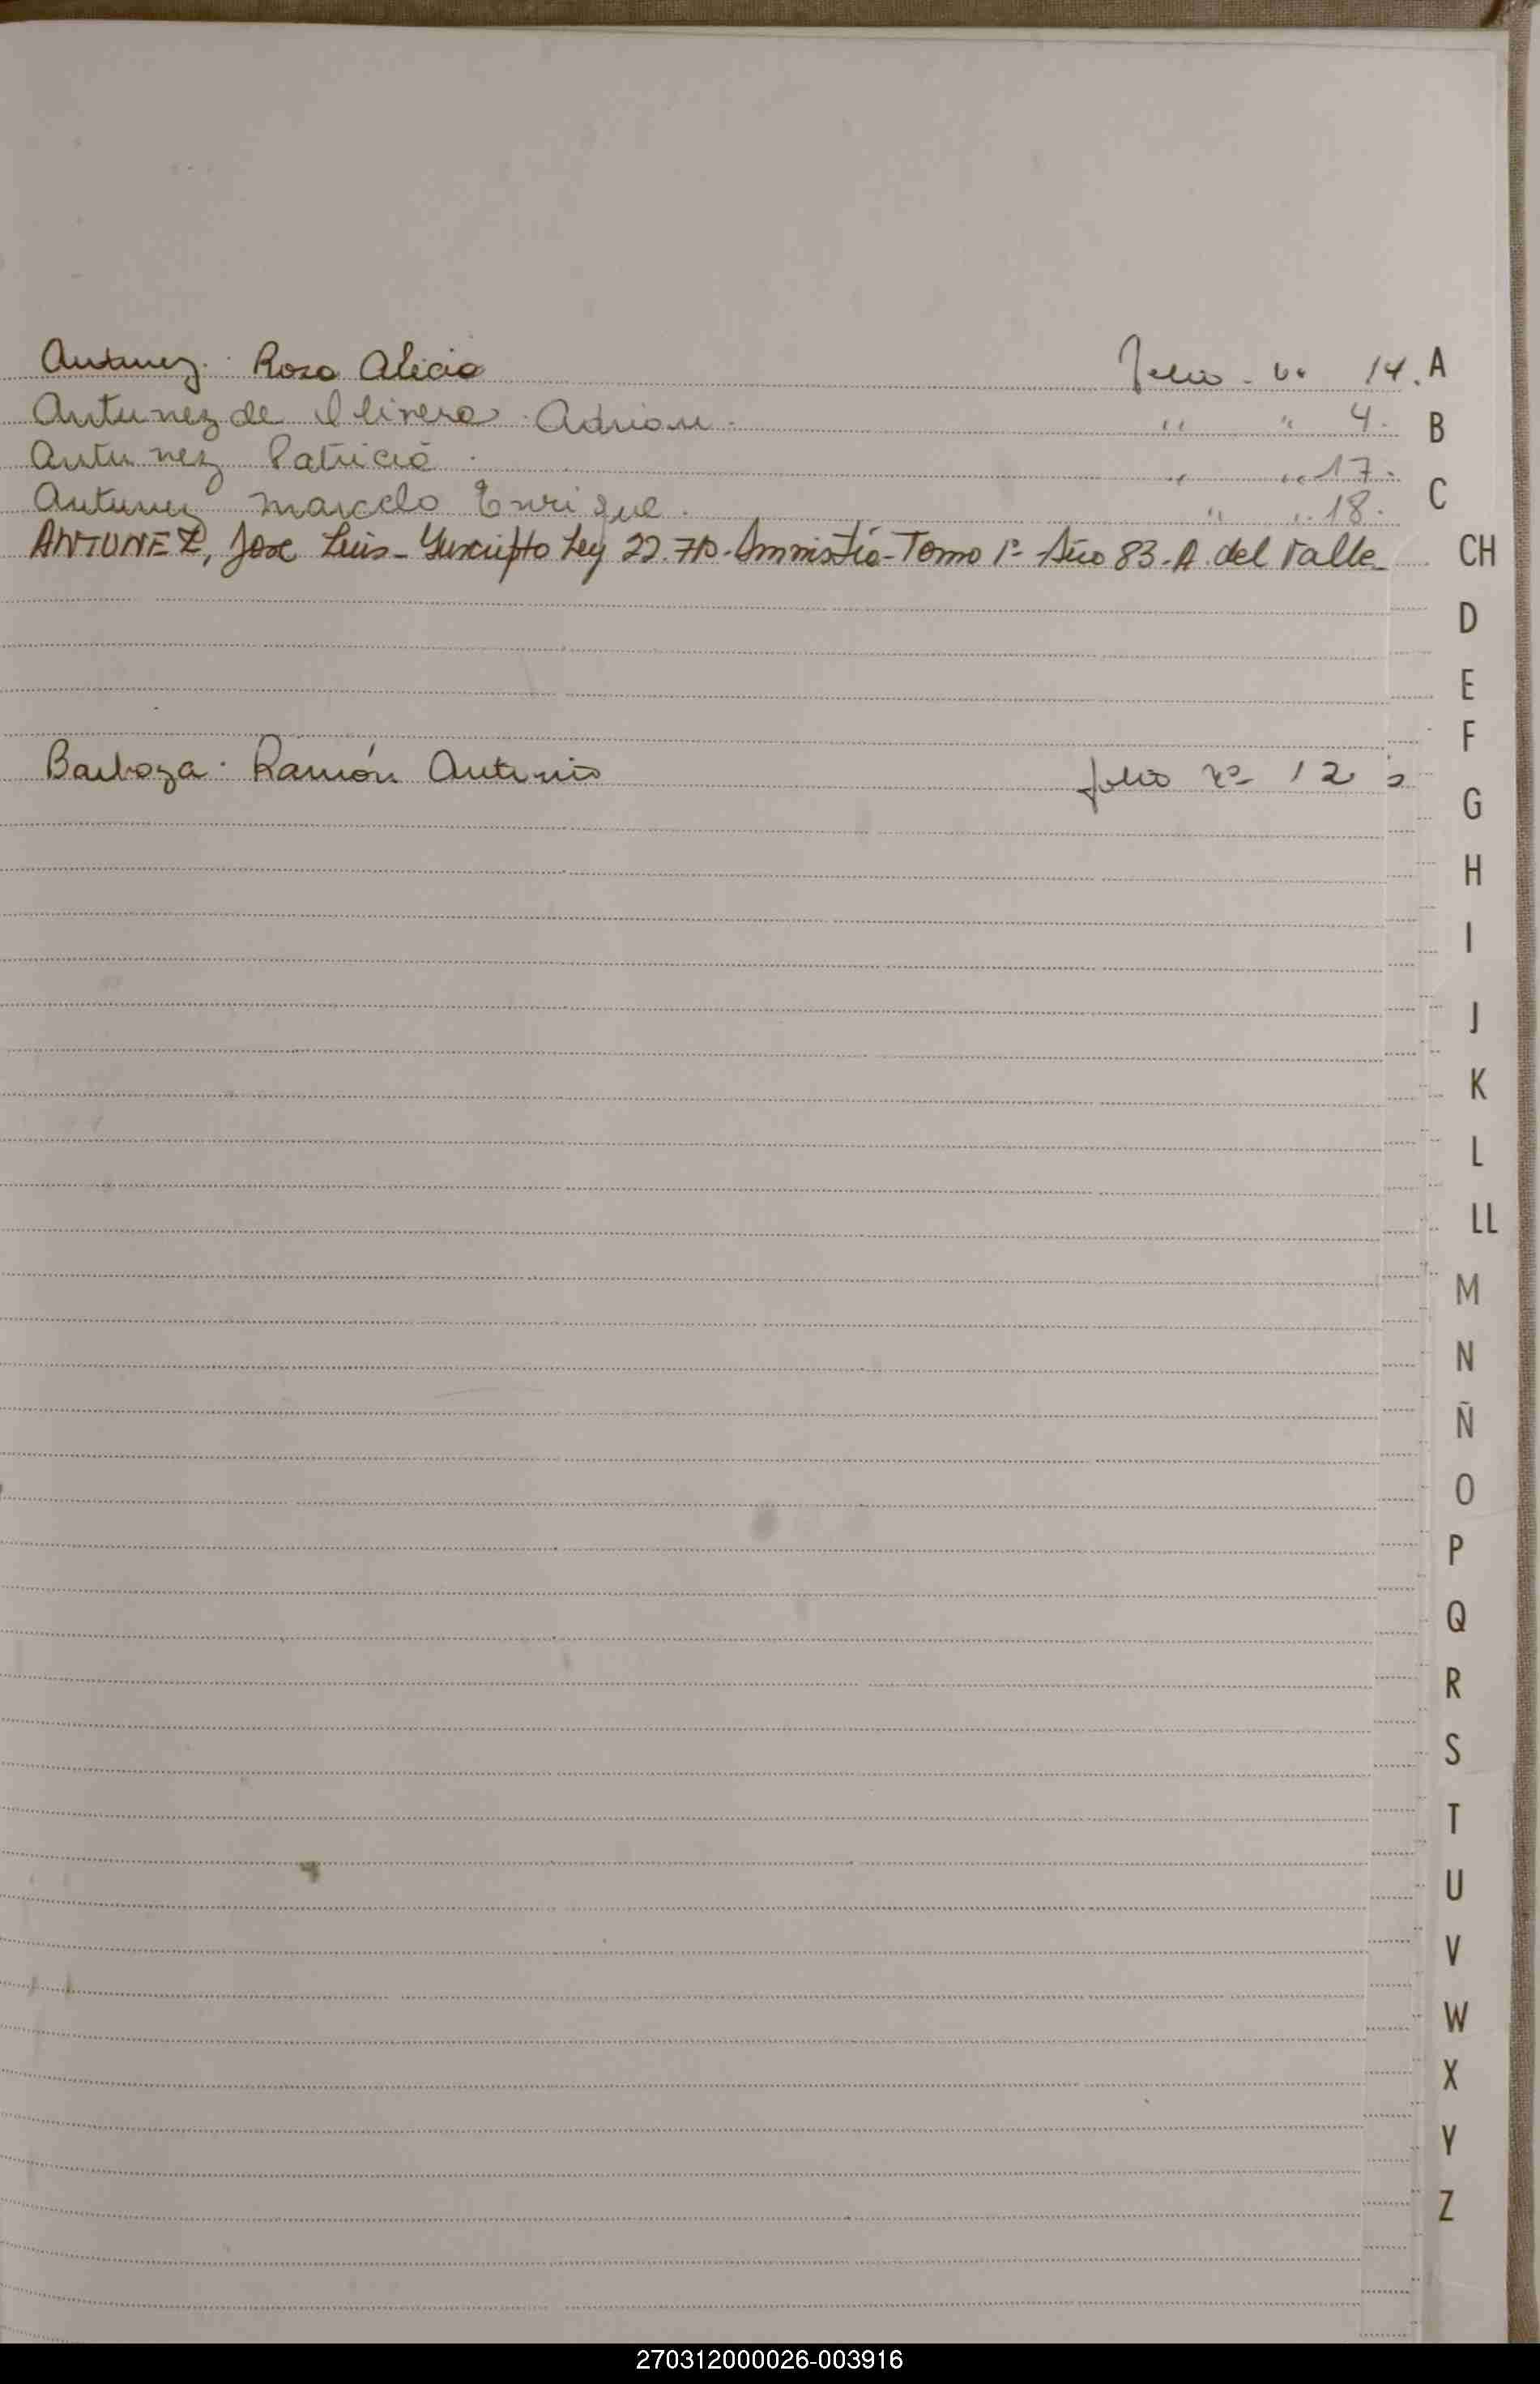 Antunez. Rosa Alicia Folio - nº 14. A
Antunez de Olivera. Adriana. " " 4. B
Antunez Patricia. " " 17.
Antunez Marcelo Enrique. " " 18. C
ANTUNEZ, Jose Luis - Inscripto Ley 22.710 - Amnistía - Tomo 1º Año 83 - A. del Valle CH
D
E
F
Barboza. Ramón Antonio folio nº 12
G
H
I
J
K
L
LL
M
N
Ñ
O
P
Q
R
S
T
U
V
W
X
Y
Z
270312000026-003916